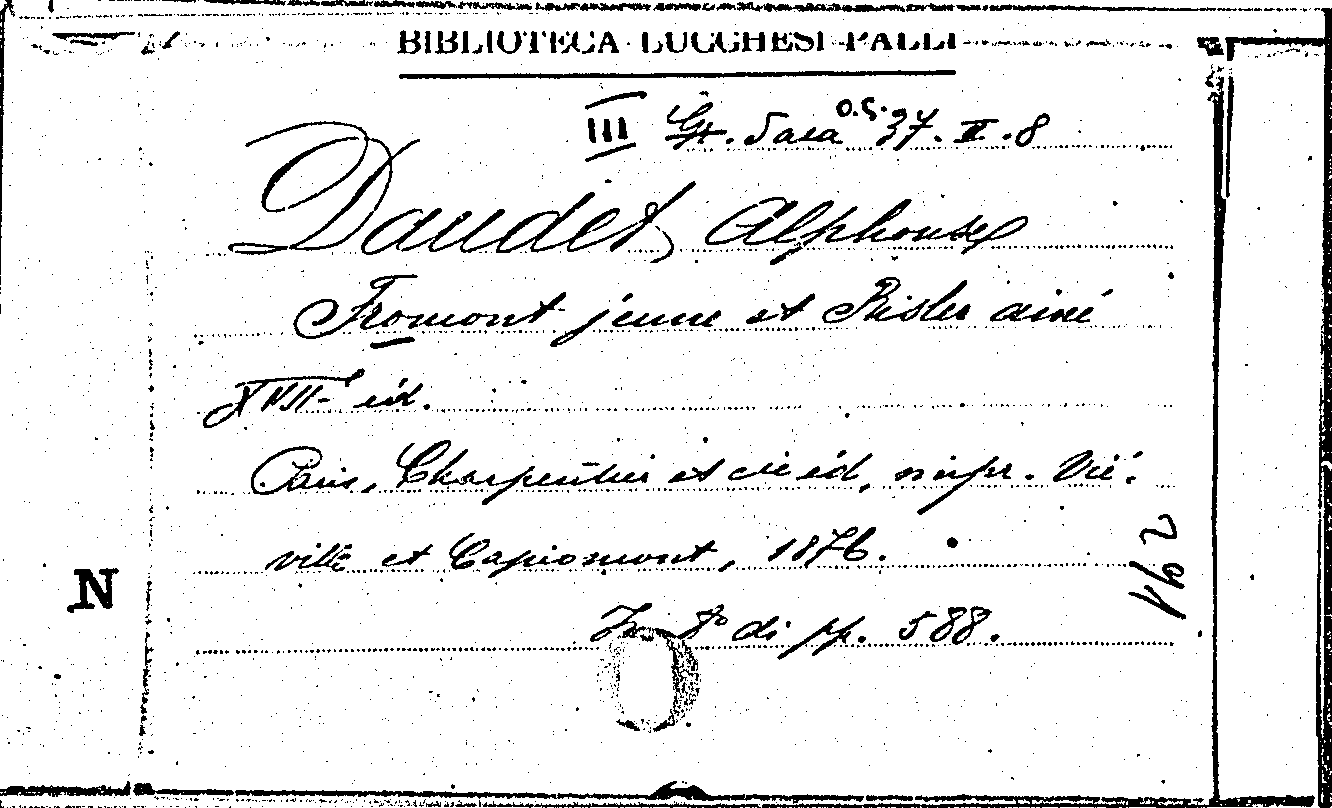 BIBLIOTECA LUCCHESI-PALLI
III Gr. Sala o.s. 37. II. 8
Daudet, Alphonse
Fromont jeune et Risler ainé
XVII- éd.
Paris, Charpentier et cie éd, impr. Vié-
ville et Capiomont, 1876.
In 8º di pp. 588.
N